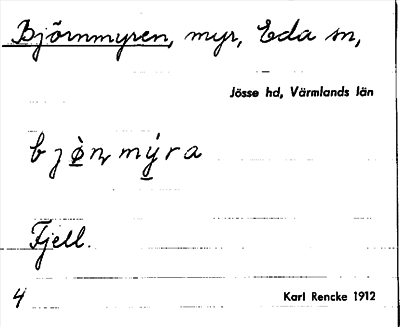 Björnmyren, myr, Eda sn,
Jösse hd, Värmlands län
bjø̀n, mýra
Fjell.
4
Karl Rencke 1912